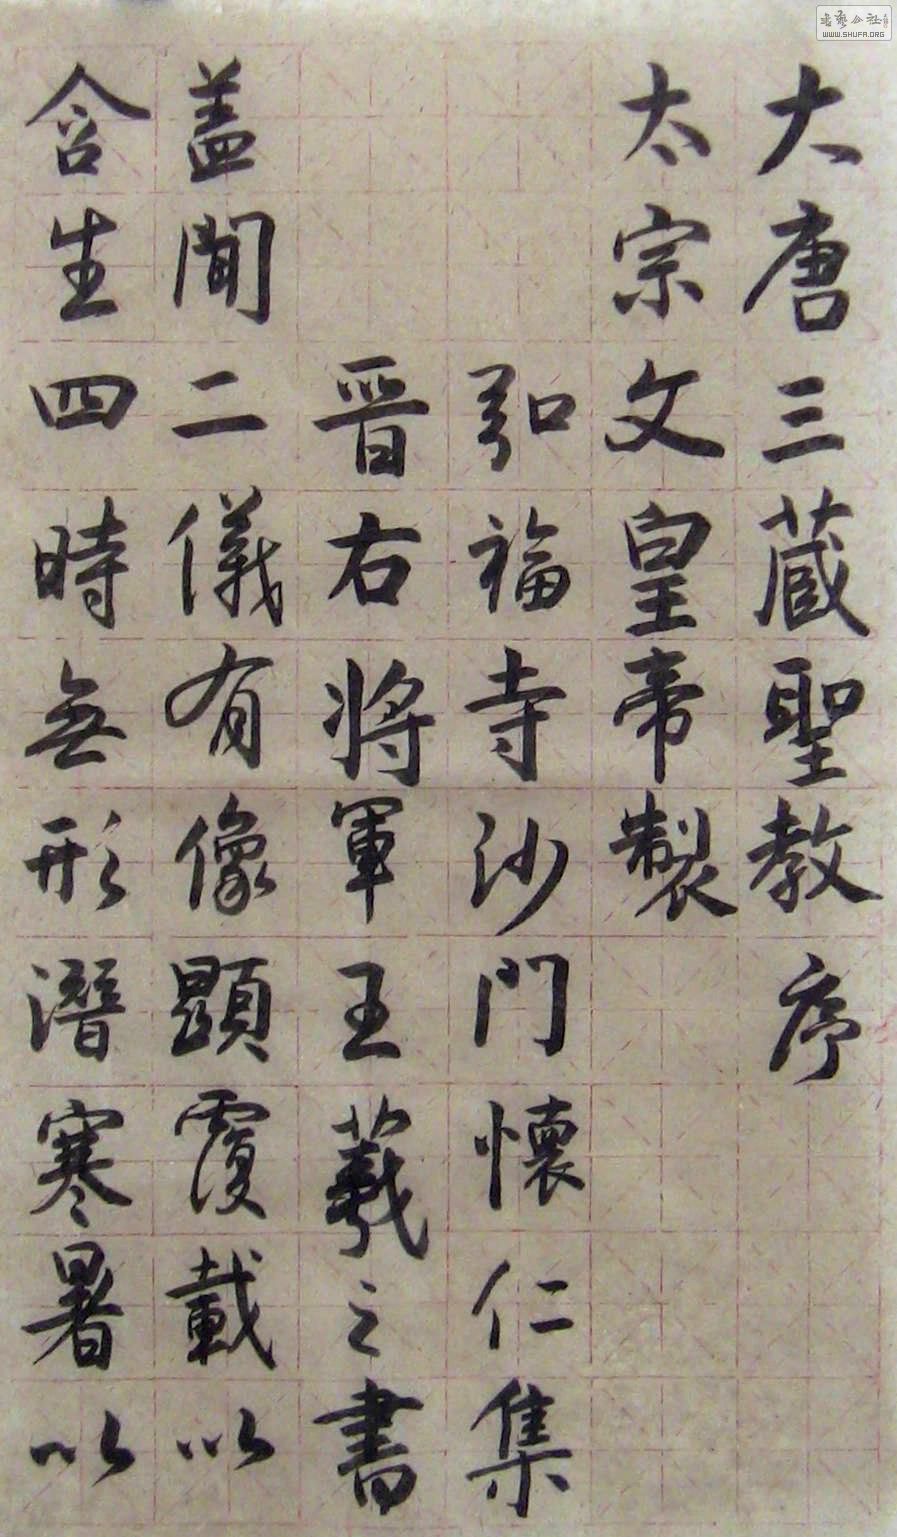 大唐三蔵聖教序
太宗文皇帝製
弘福寺沙門懷仁集
晋右將軍王羲之書
盖聞二儀有像顯覆載以
含生四時無形潛寒暑以
書藝公社
WWW.SHUFA.ORG